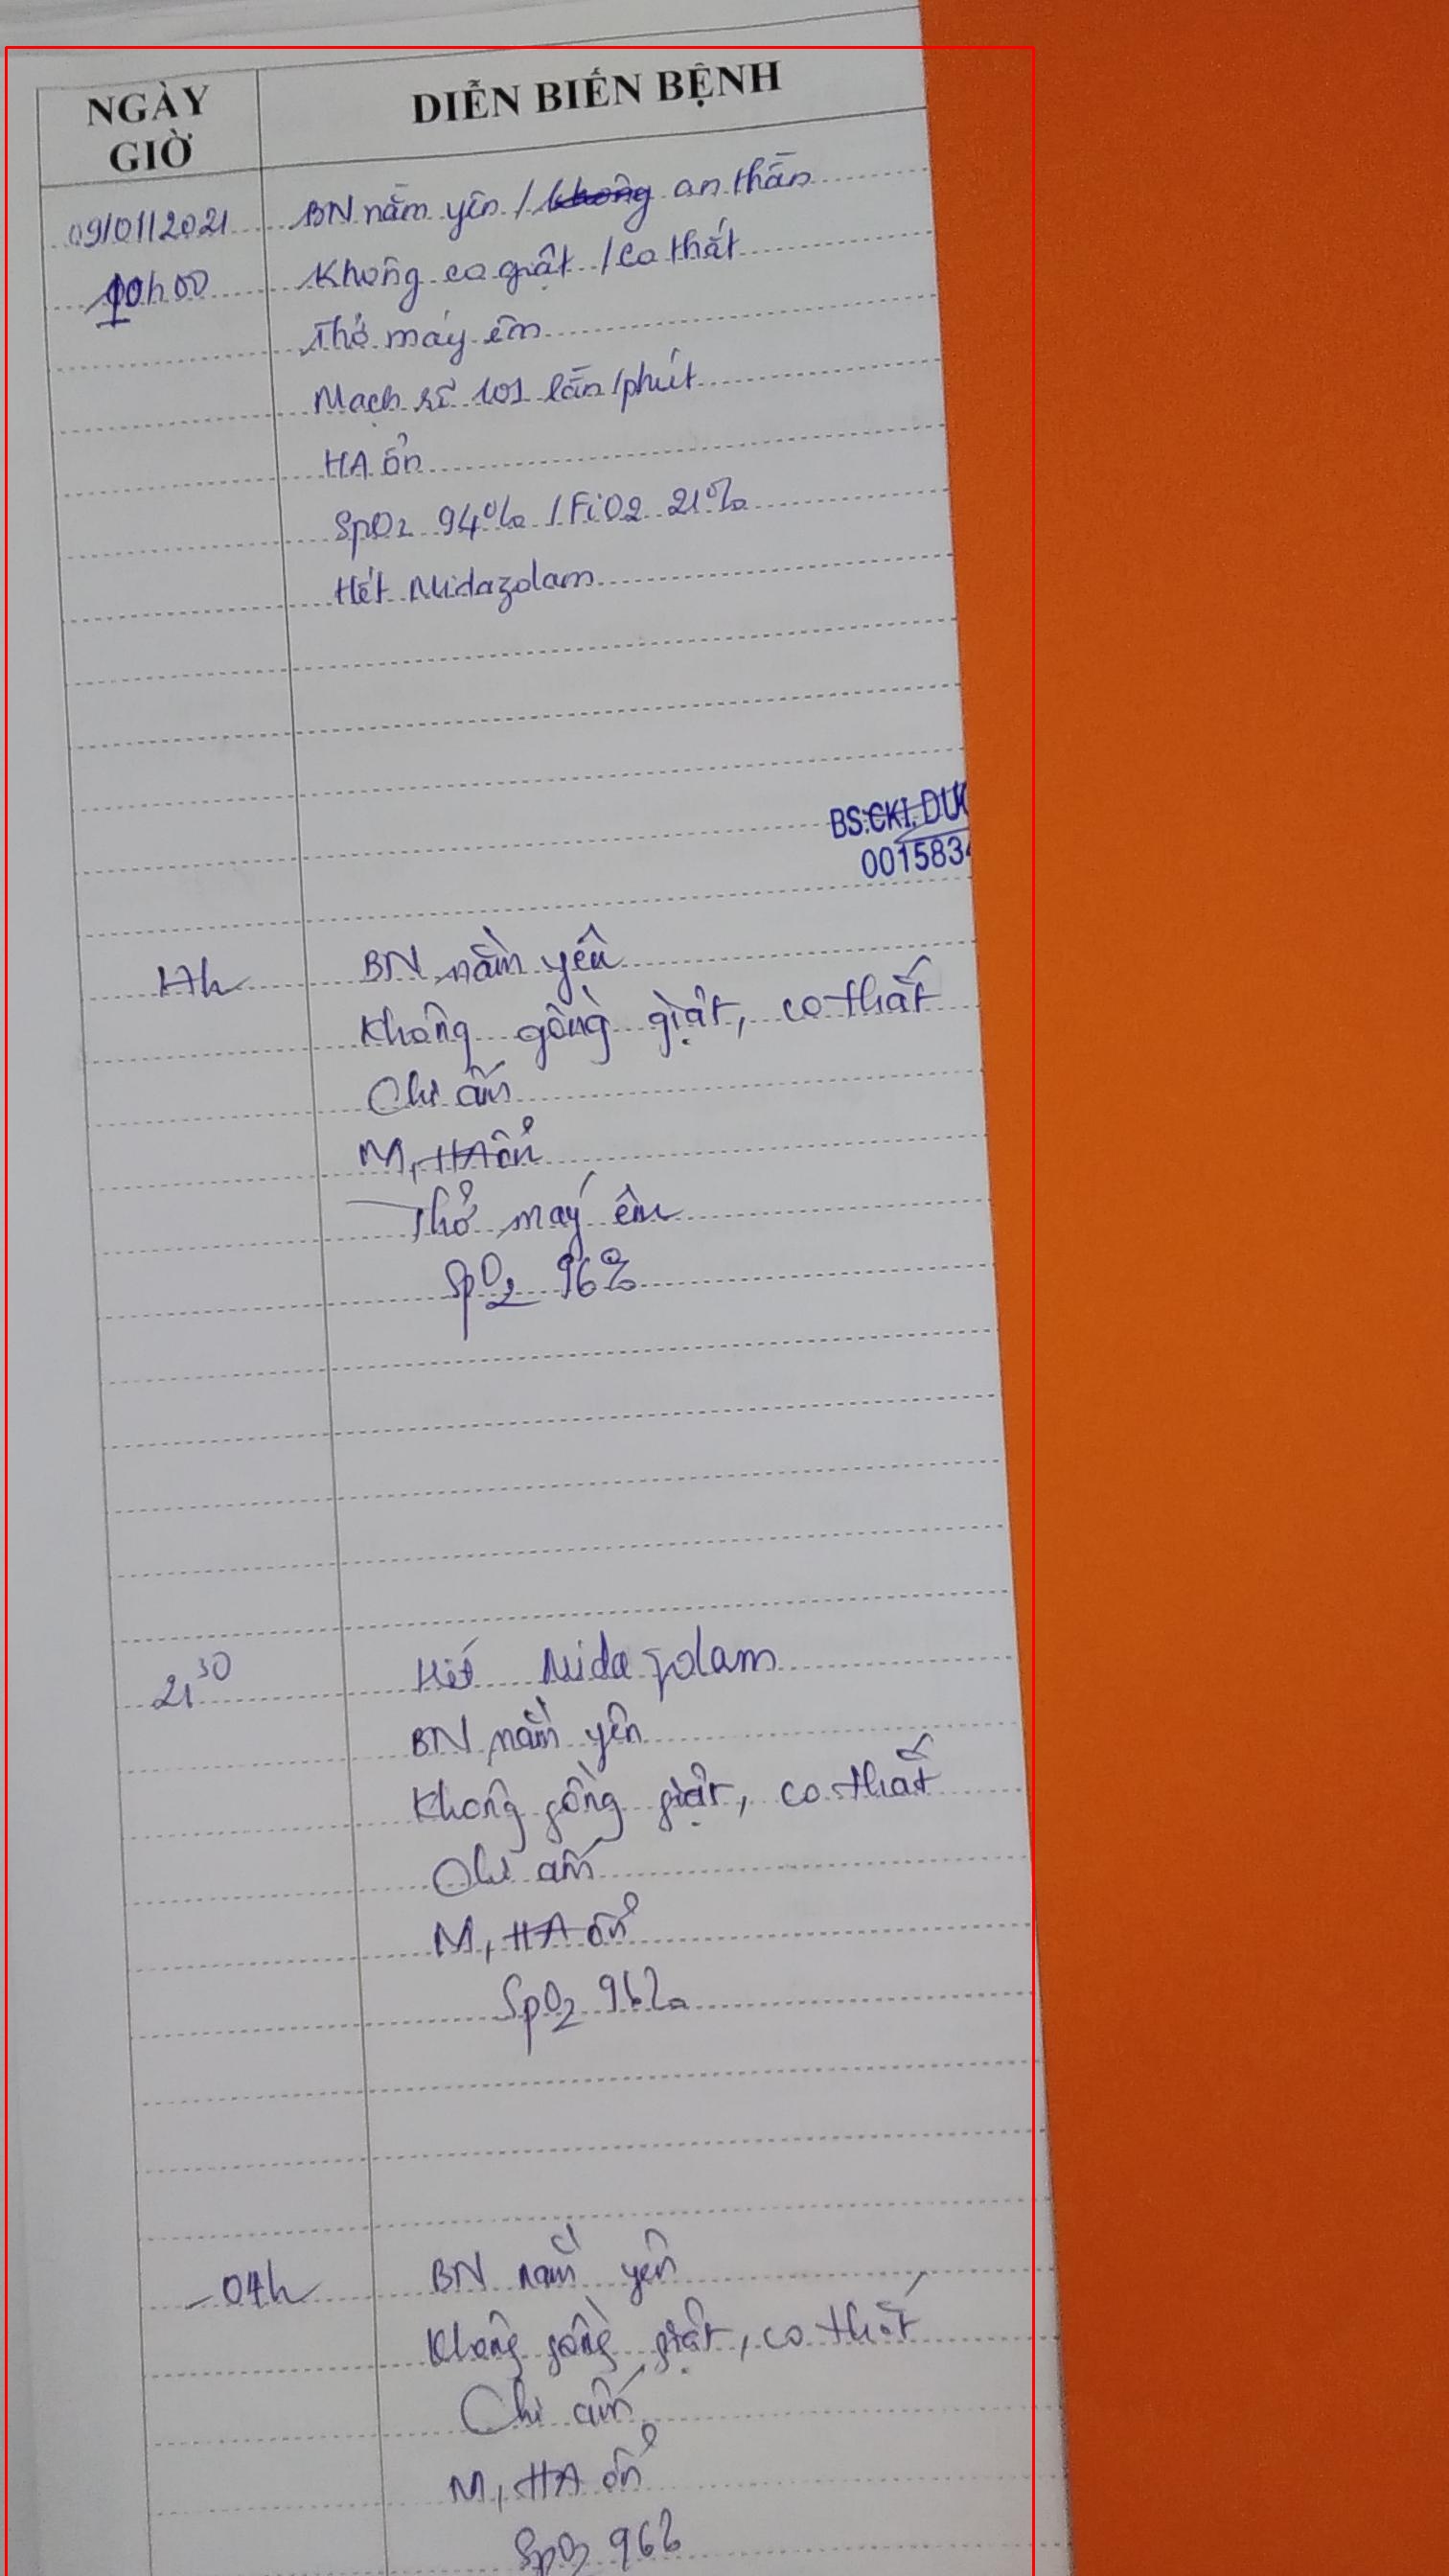 NGÀY GIỜ
DIỄN BIẾN BỆNH
09/01/2021 BN nằm yên / an thần
10h00 Không co giật / co thắt
Thở máy êm
Mạch rõ 101 lần/phút
HA ổn
SpO2 94% / FiO2 21%
Hết Midazolam
BS.CKI. DƯ
0015834
17h BN nằm yên
Không gồng giật, co thắt
Chi ấm
M, HA ổn
Thở máy êm
SpO2 96%
21 30 Hết Midazolam
BN nằm yên
Không gồng giật, co thắt
Chi ấm
M, HA ổn
SpO2 96%
BN nằm yên
Không gồng giật, co thắt
Chi ấm
M, HA ổn
SpO2 96%